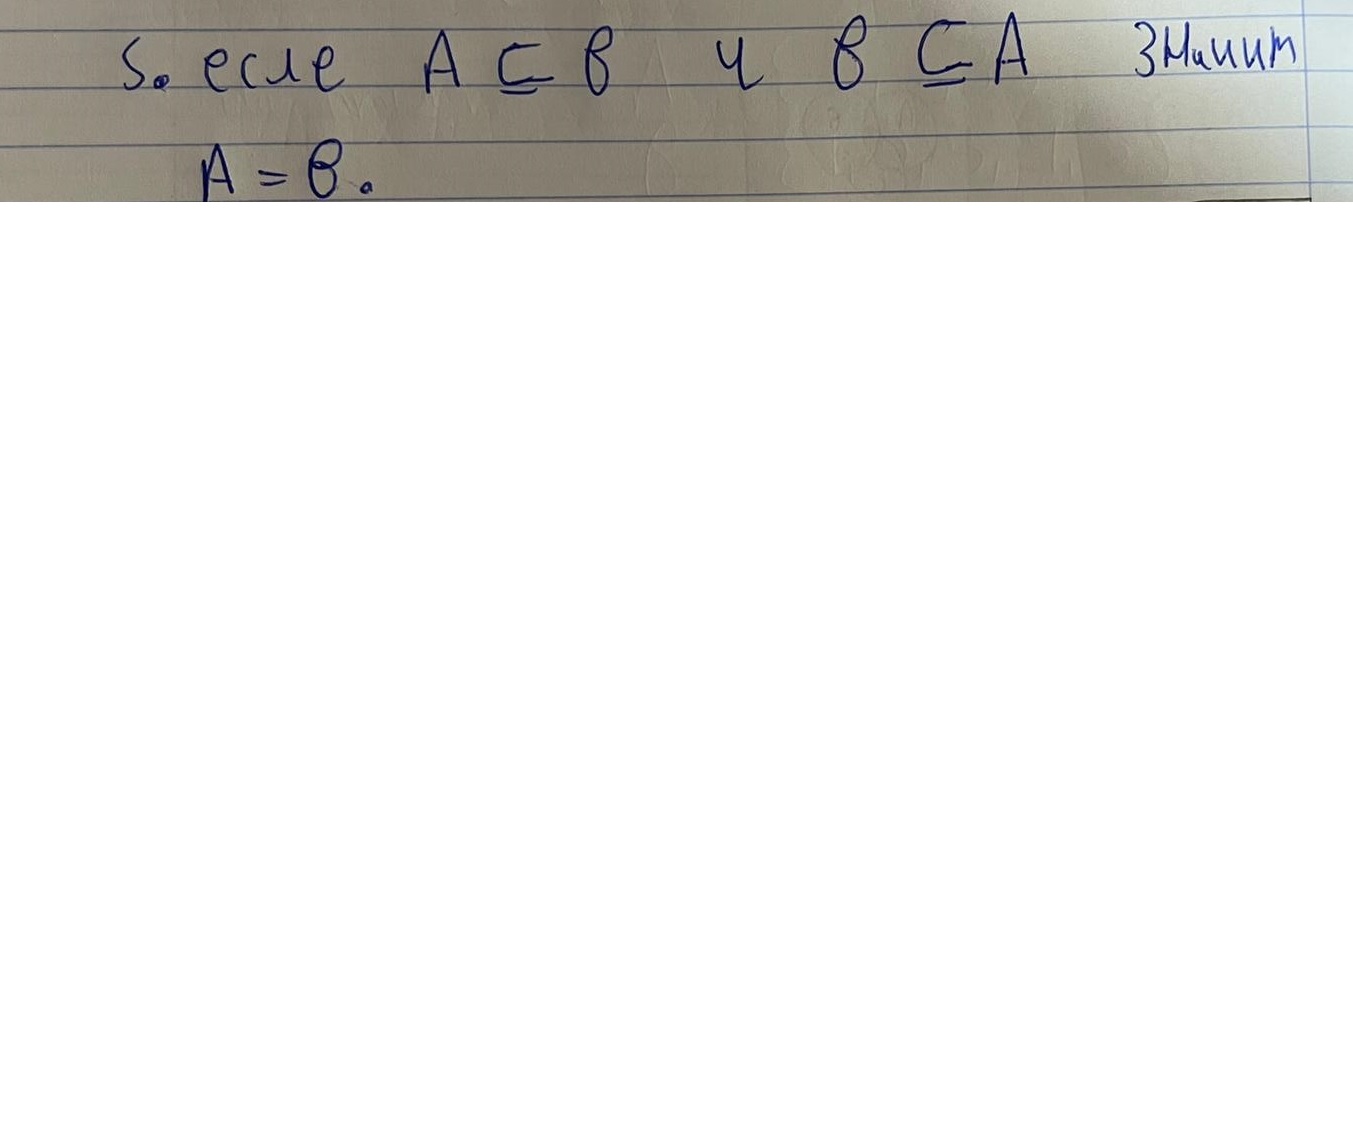 5. есле A ⊆ B и B ⊆ A значит
A = B.